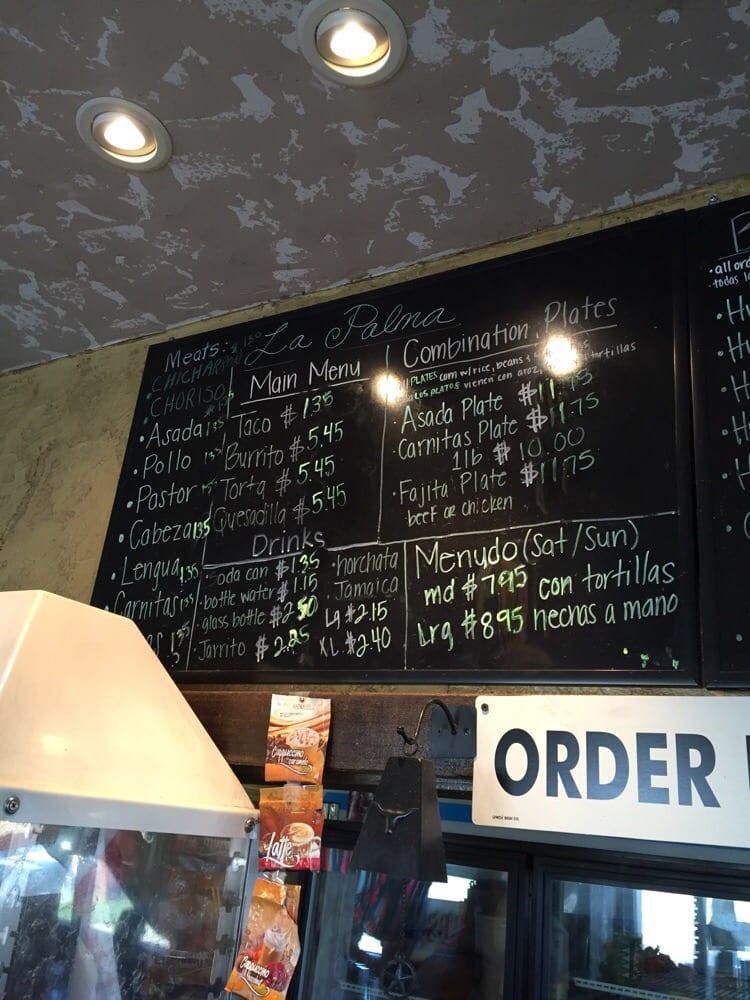 La Palma
Meats:
CHICHARRON
CHORISO
• Asada 1.35
• Pollo 1.35
• Pastor 1.35
• Cabeza 1.35
• Lengua 1.35
Carnitas 1.35
1.35
Main Menu
Taco $1.35
Burrito $5.45
Torta $5.45
Quesadilla $5.45
Drinks
soda can $1.35
bottle water $1.15
glass bottle $2.50
Jarrito $2.25
• horchata
Jamaica
Lg $2.15
XL $2.40
Combination Plates
PLATES com w/rice, beans & tortillas
LOS PLATOS vienen con arroz
• Asada Plate $11.75
• Carnitas Plate $11.75
1lb $10.00
• Fajita Plate $11.75
beef or chicken
Menudo (Sat/Sun)
md $7.95 con tortillas
Lrg $8.95 hechas a mano
• all ord
• todas
ORDER
Cappuccino
caramelo
Latte
Cappuccino